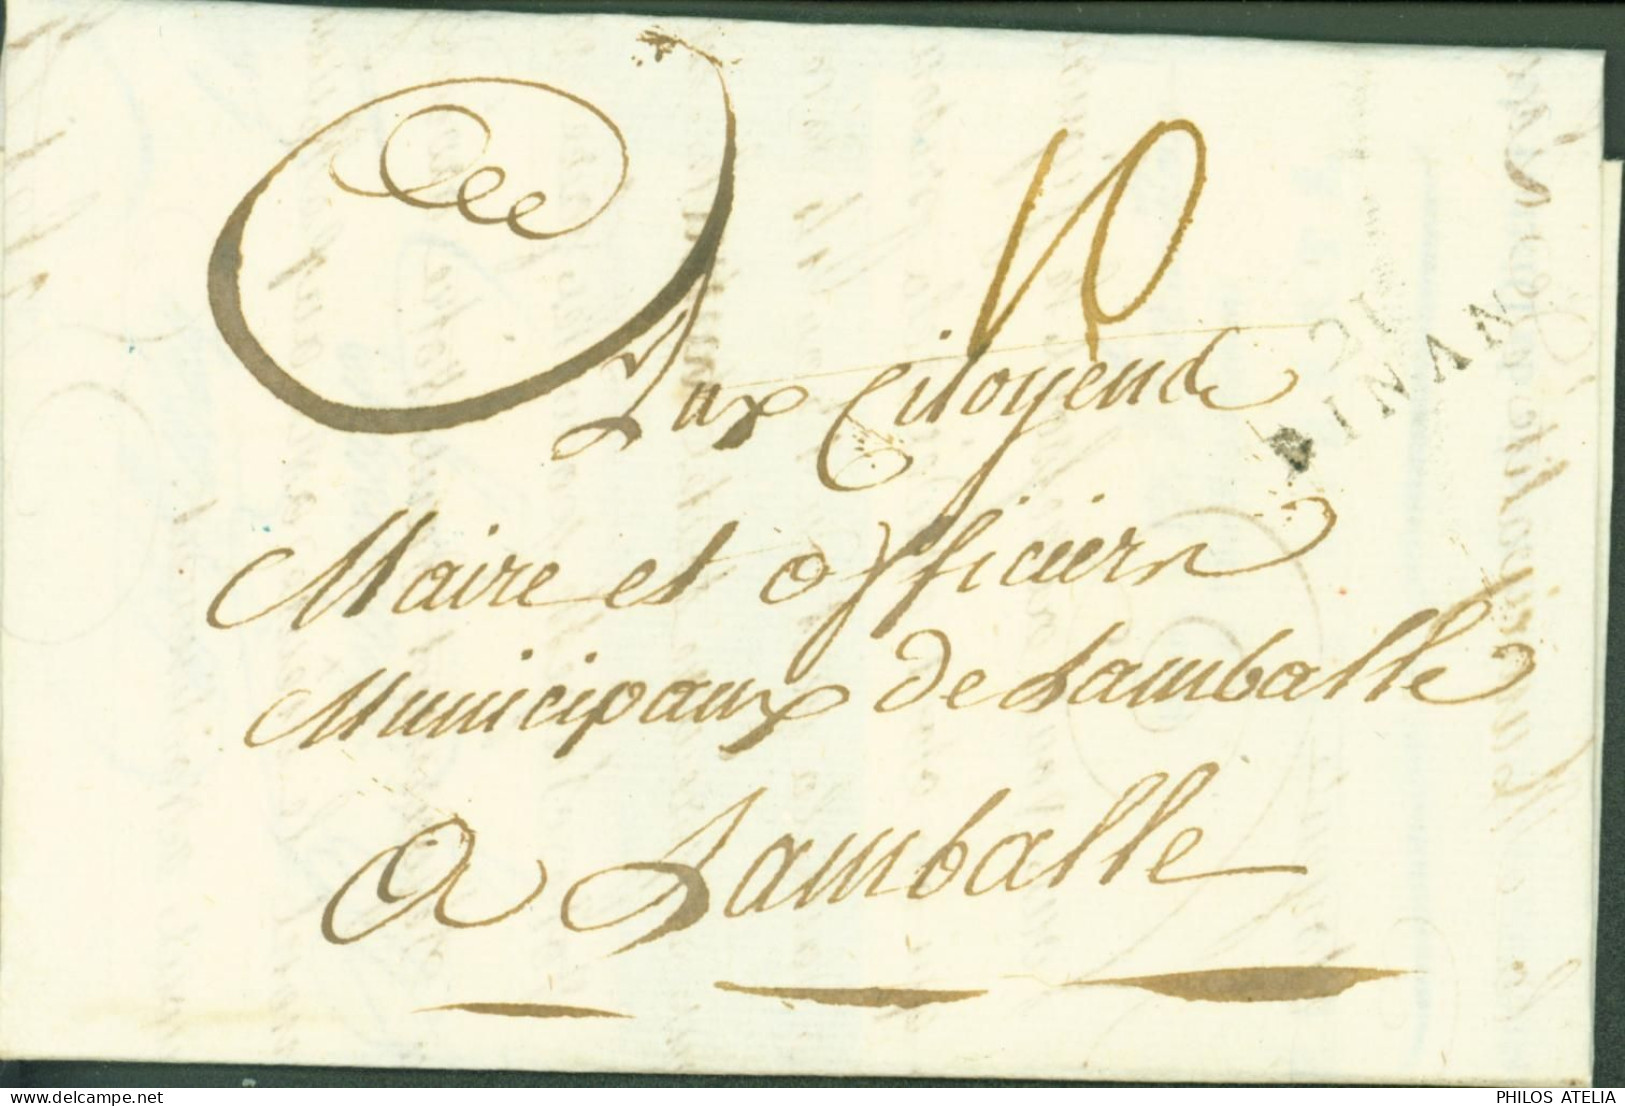 10
21
DINAN
Aux Citoyens
Maire et officiers
Municipaux de Lamballe
a Lamballe
delcampe.net
PHILOS ATELIA